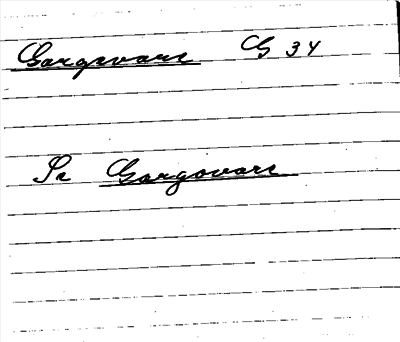 Gargovare G 34
Se Gargovare